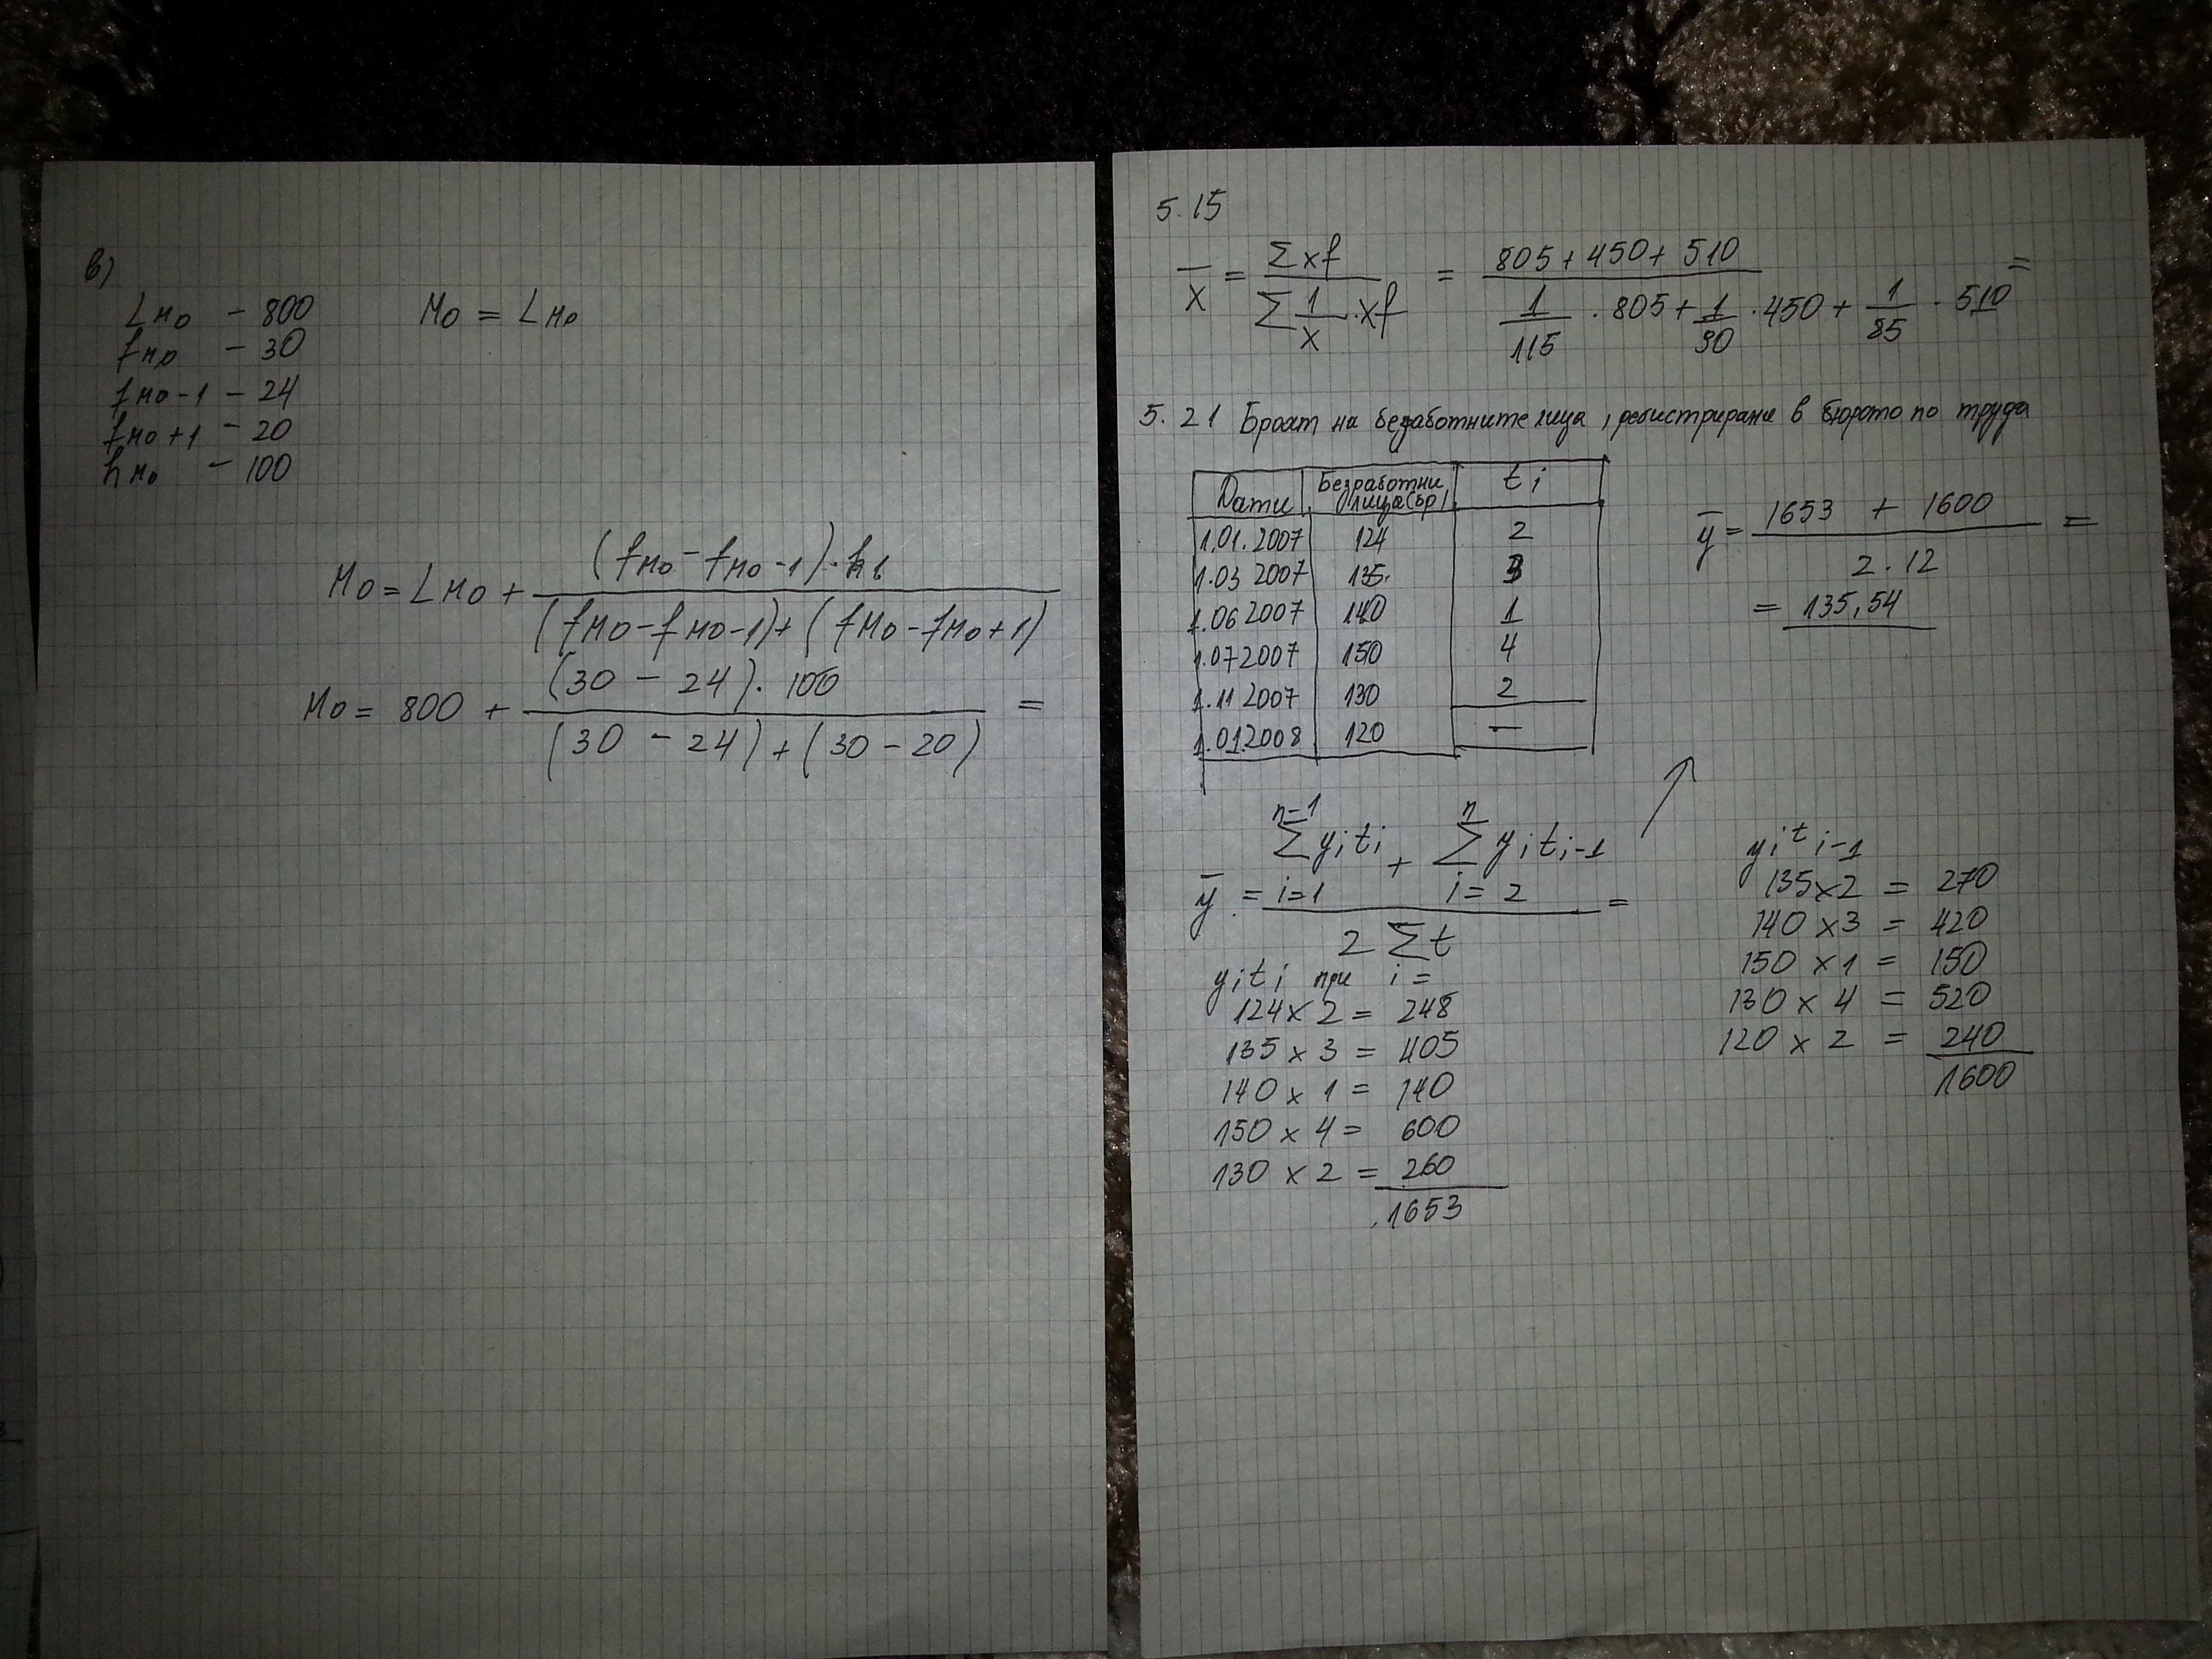 в)
Lмо - 800 Мо = Lмо
fмо - 30
fмо-1 - 24
fмо+1 - 20
hмо - 100
Мо = Lмо + (fмо - fмо-1) · h / (fмо - fмо-1) + (fмо - fмо+1)
Мо = 800 + (30 - 24) · 100 / (30 - 24) + (30 - 20) =
5.15
x̄ = Σxf / Σ 1/x · xf = 805 + 450 + 510 / 1/115 · 805 + 1/90 · 450 + 1/85 · 510 =
5.21 Броят на безаботните лица, регистрирани в бюрото по труда
Дати Безработни лица (бр) ti
1.01.2007 124 2
1.03 2007 135 3
1.06 2007 140 1
1.07 2007 150 4
1.11 2007 130 2
1.01 2008 120 —
ȳ = 1653 + 1600 / 2.12 =
= 135,54
ȳ = n=1 Σ i=1 yi ti + n Σ i=2 yi ti-1 / 2 Σt =
yi ti при i =
124 x 2 = 248
135 x 3 = 405
140 x 1 = 140
150 x 4 = 600
130 x 2 = 260
1653
yi ti-1
135 x 2 = 270
140 x 3 = 420
150 x 1 = 150
130 x 4 = 520
120 x 2 = 240
1600